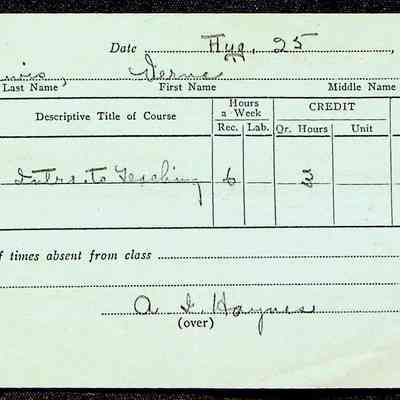 Date Aug. 25,
Verne
Last Name First Name Middle Name
Descriptive Title of Course Hours a Week CREDIT
Rec. Lab. Qr. Hours Unit
Intro. to Teaching 6 3
f times absent from class
A. I. Haynes
(over)